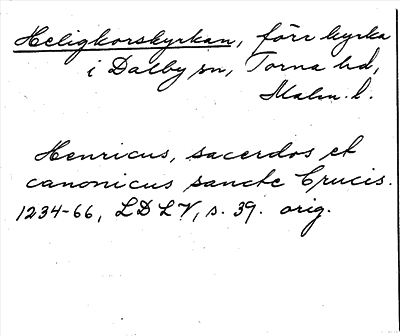 Heligkorskyrkan, förr kyrka
i Dalby sn, Torna hd,
Malm. l.
Henricus, sacerdos et
canonicus sancte Crucis.
1234-66, LDLV, s. 39. orig.